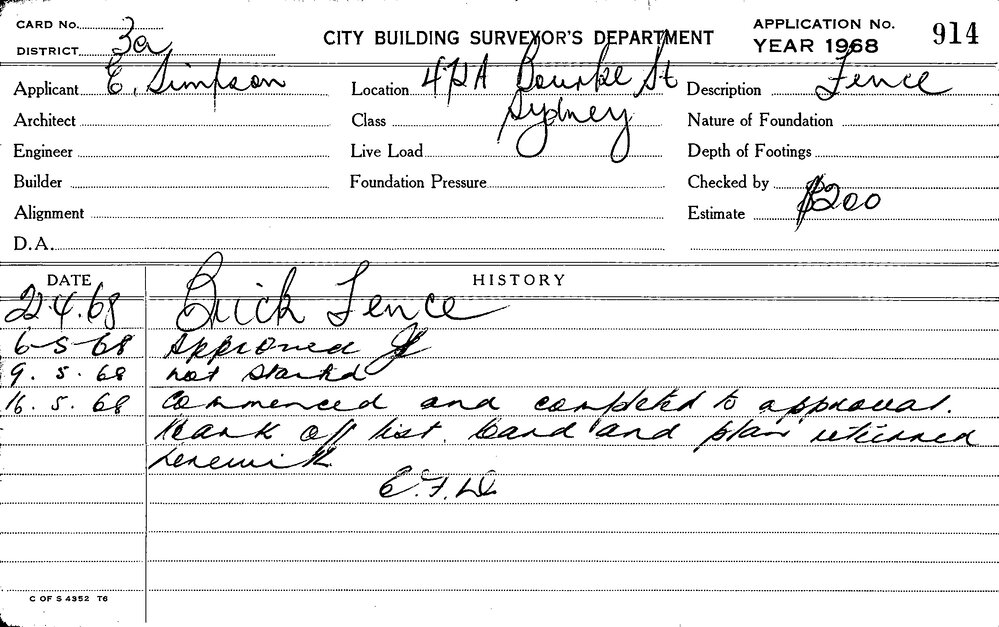 CARD No.
DISTRICT 3a
CITY BUILDING SURVEYOR'S DEPARTMENT
APPLICATION No. 914
YEAR 1968
Applicant E. Simpson
Location Bourke St
Sydney
Description Fence
Architect
Class
Nature of Foundation
Engineer
Live Load
Depth of Footings
Builder
Foundation Pressure
Checked by
Alignment
Estimate $200
D.A.
DATE HISTORY
22.4.68 Brick Fence
6-5-68 Approved
9.5.68 not started
16.5.68 Commenced and completed to approval.
Mark off list. Card and plan returned
herewith
C OF S 4352 T6